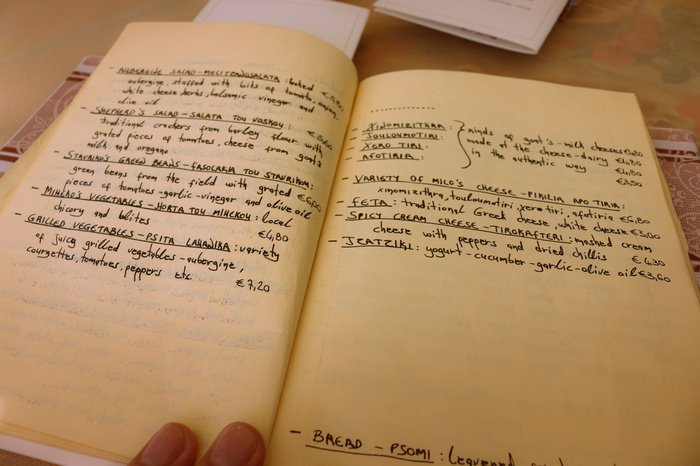 - AUBERGINE SALAD - MELITZANOSALATA : baked
aubergine, stuffed with bits of tomato,
white cheese, herbs, balsamic vinegar and
olive oil
- SHEPHERD'S SALAD - SALATA TOU VOSKOU :
traditional crackers from barley flour with
grated pieces of tomatoes, cheese from goat's
milk and oregano
- STAVRIKO'S GREEN BEANS - FASOLAKIA TOU STAVRIKOU :
green beans from the field with grated
pieces of tomatoes - garlic - vinegar and olive oil €6,00
- MIHELIO'S VEGETABLES - HORTA TOU MIHELIOU : local
chicory and blites €4,80
- GRILLED VEGETABLES - PSITA LAHANIKA : variety
of juicy grilled vegetables - aubergine,
courgettes, tomatoes, peppers etc €7,20
- XINOMIZITHRA :
- TOULOUMOTIRI :
- XERO TIRI :
- AFOTIRIA :
kinds of goat's - milk cheeses €4,20
made at the cheese - dairy €4,80
in the authentic way €4,80
€3,50
- VARIETY OF MILO'S CHEESE - PIKILIA APO TIRIA :
xinomizithra, touloumotiri, xero tiri, afotiria €6,80
- FETA : traditional Greek cheese, white cheese €3,00
- SPICY CREAM CHEESE - TIROKAFTERI : mashed cream
cheese with peppers and dried chillis € 4,30
- TZATZIKI : yogurt - cucumber - garlic - olive oil €3,60
- BREAD - PSOMI :